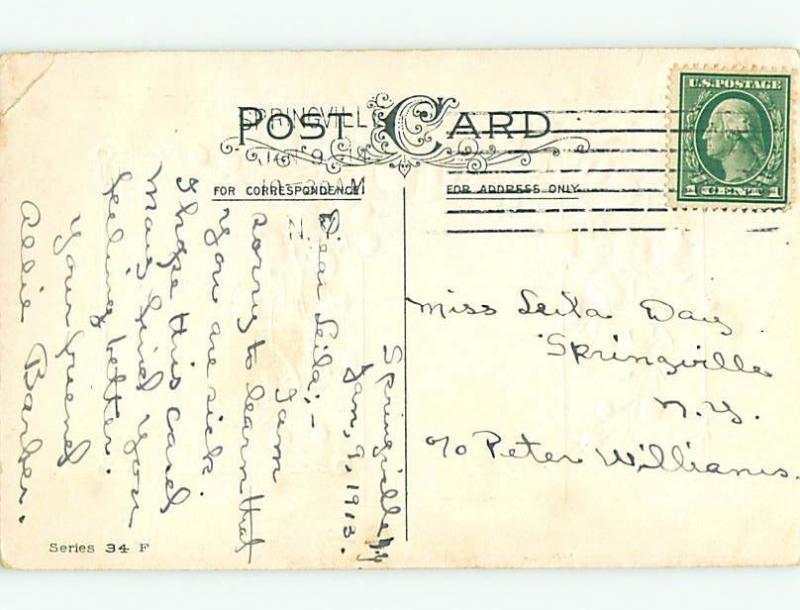 POST CARD
SPRINGVILL
JAN 9 14
10-30AM
N.
U.S. POSTAGE
1 CENT 1
FOR CORRESPONDENCE
FOR ADDRESS ONLY
Springville N.Y.
Jan, 9, 1913.
Dear Leila; -
I am
sorry to learn that
you are sick.
I hope this card
may find you
feeling better.
Your friend
Allie Barber.
Miss Leila Day
Springville
N.Y.
c/o Peter Williams.
Series 34 F